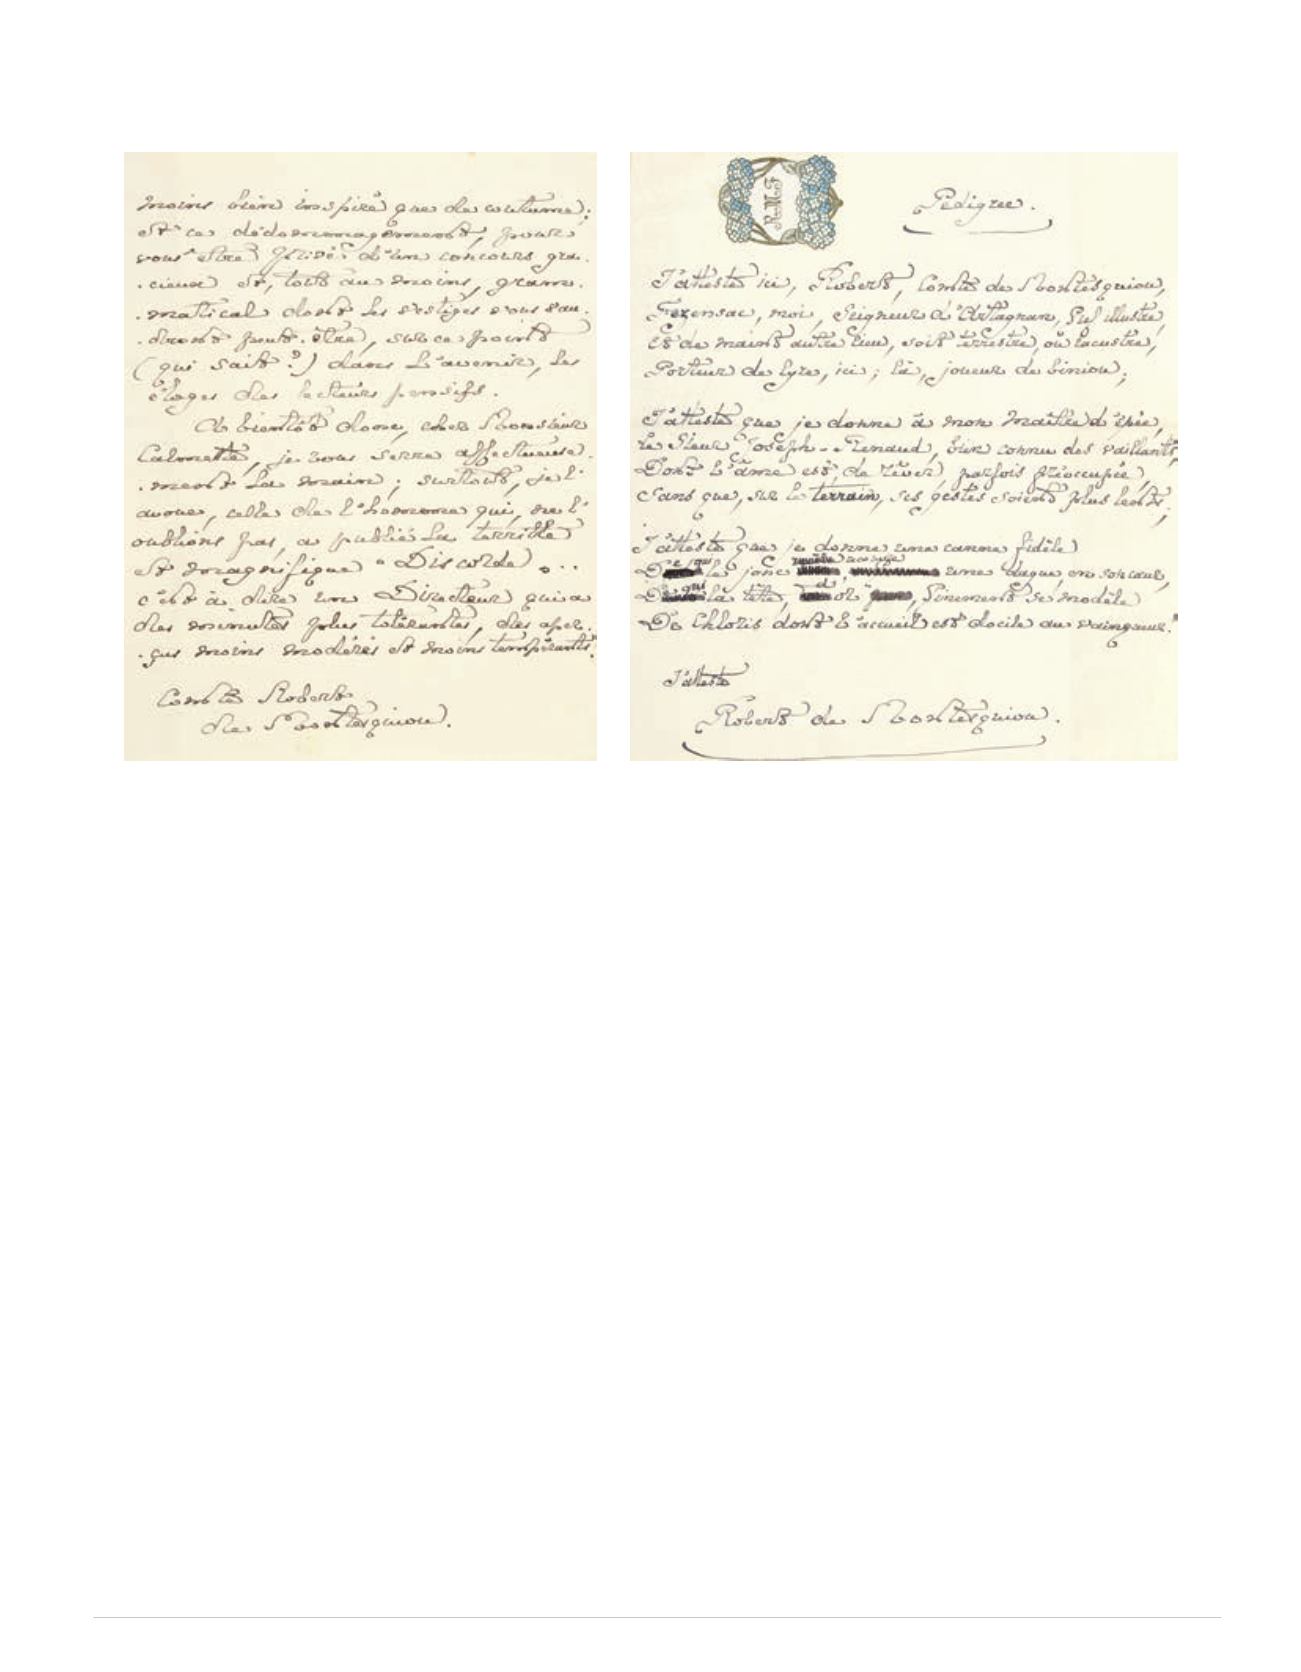 moins bien inspiré que de coutume;
est ce dédommagement, pour
vous être privé d'un concours gra.
.cieux et, tout au moins, gram.
.matical dont les vestiges vous vau.
.dront peut.être, sur ce point
(qui sait?) dans l'avenir, les
éloges des lecteurs pensifs.
A bientôt donc, cher Monsieur
Calmette, je vous serre affectueuse.
.ment la main; surtout, je l'
avoue, celle de l'homme qui, ne l'
oublions pas, a publié la terrible
et magnifique "Discorde"...
c'est à dire un Directeur qui a
des minutes plus tolérantes, des aper.
.çus moins modérés et moins tempérants.
Comte Robert
de Montesquiou.
R M F
Pedigree.
J'atteste ici, Robert, Comte de Montesquiou,
Fezensac, moi, Seigneur d'Artagnan, fief illustre,
Et de maint autre lieu, soit terrestre, ou lacustre,
Porteur de lyre, ici; là, joueur de biniou;
J'atteste que je donne à mon maître d'épée,
Le Sieur Joseph-Renaud, bien connu des vaillants,
Dont l'âme est, de rêver, parfois préoccupée,
Sans que, sur le terrain, ses gestes soient plus lents;
J'atteste que je donne une canne fidèle
De qui le jonc une dague en son cœur,
De qui la tête, d'or, finement se modèle
De Chloris dont l'accueil est docile au vainqueur."
J'atteste
Robert de Montesquiou.